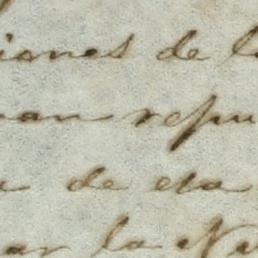 iones de l
an repu
a de eta
ar la Na